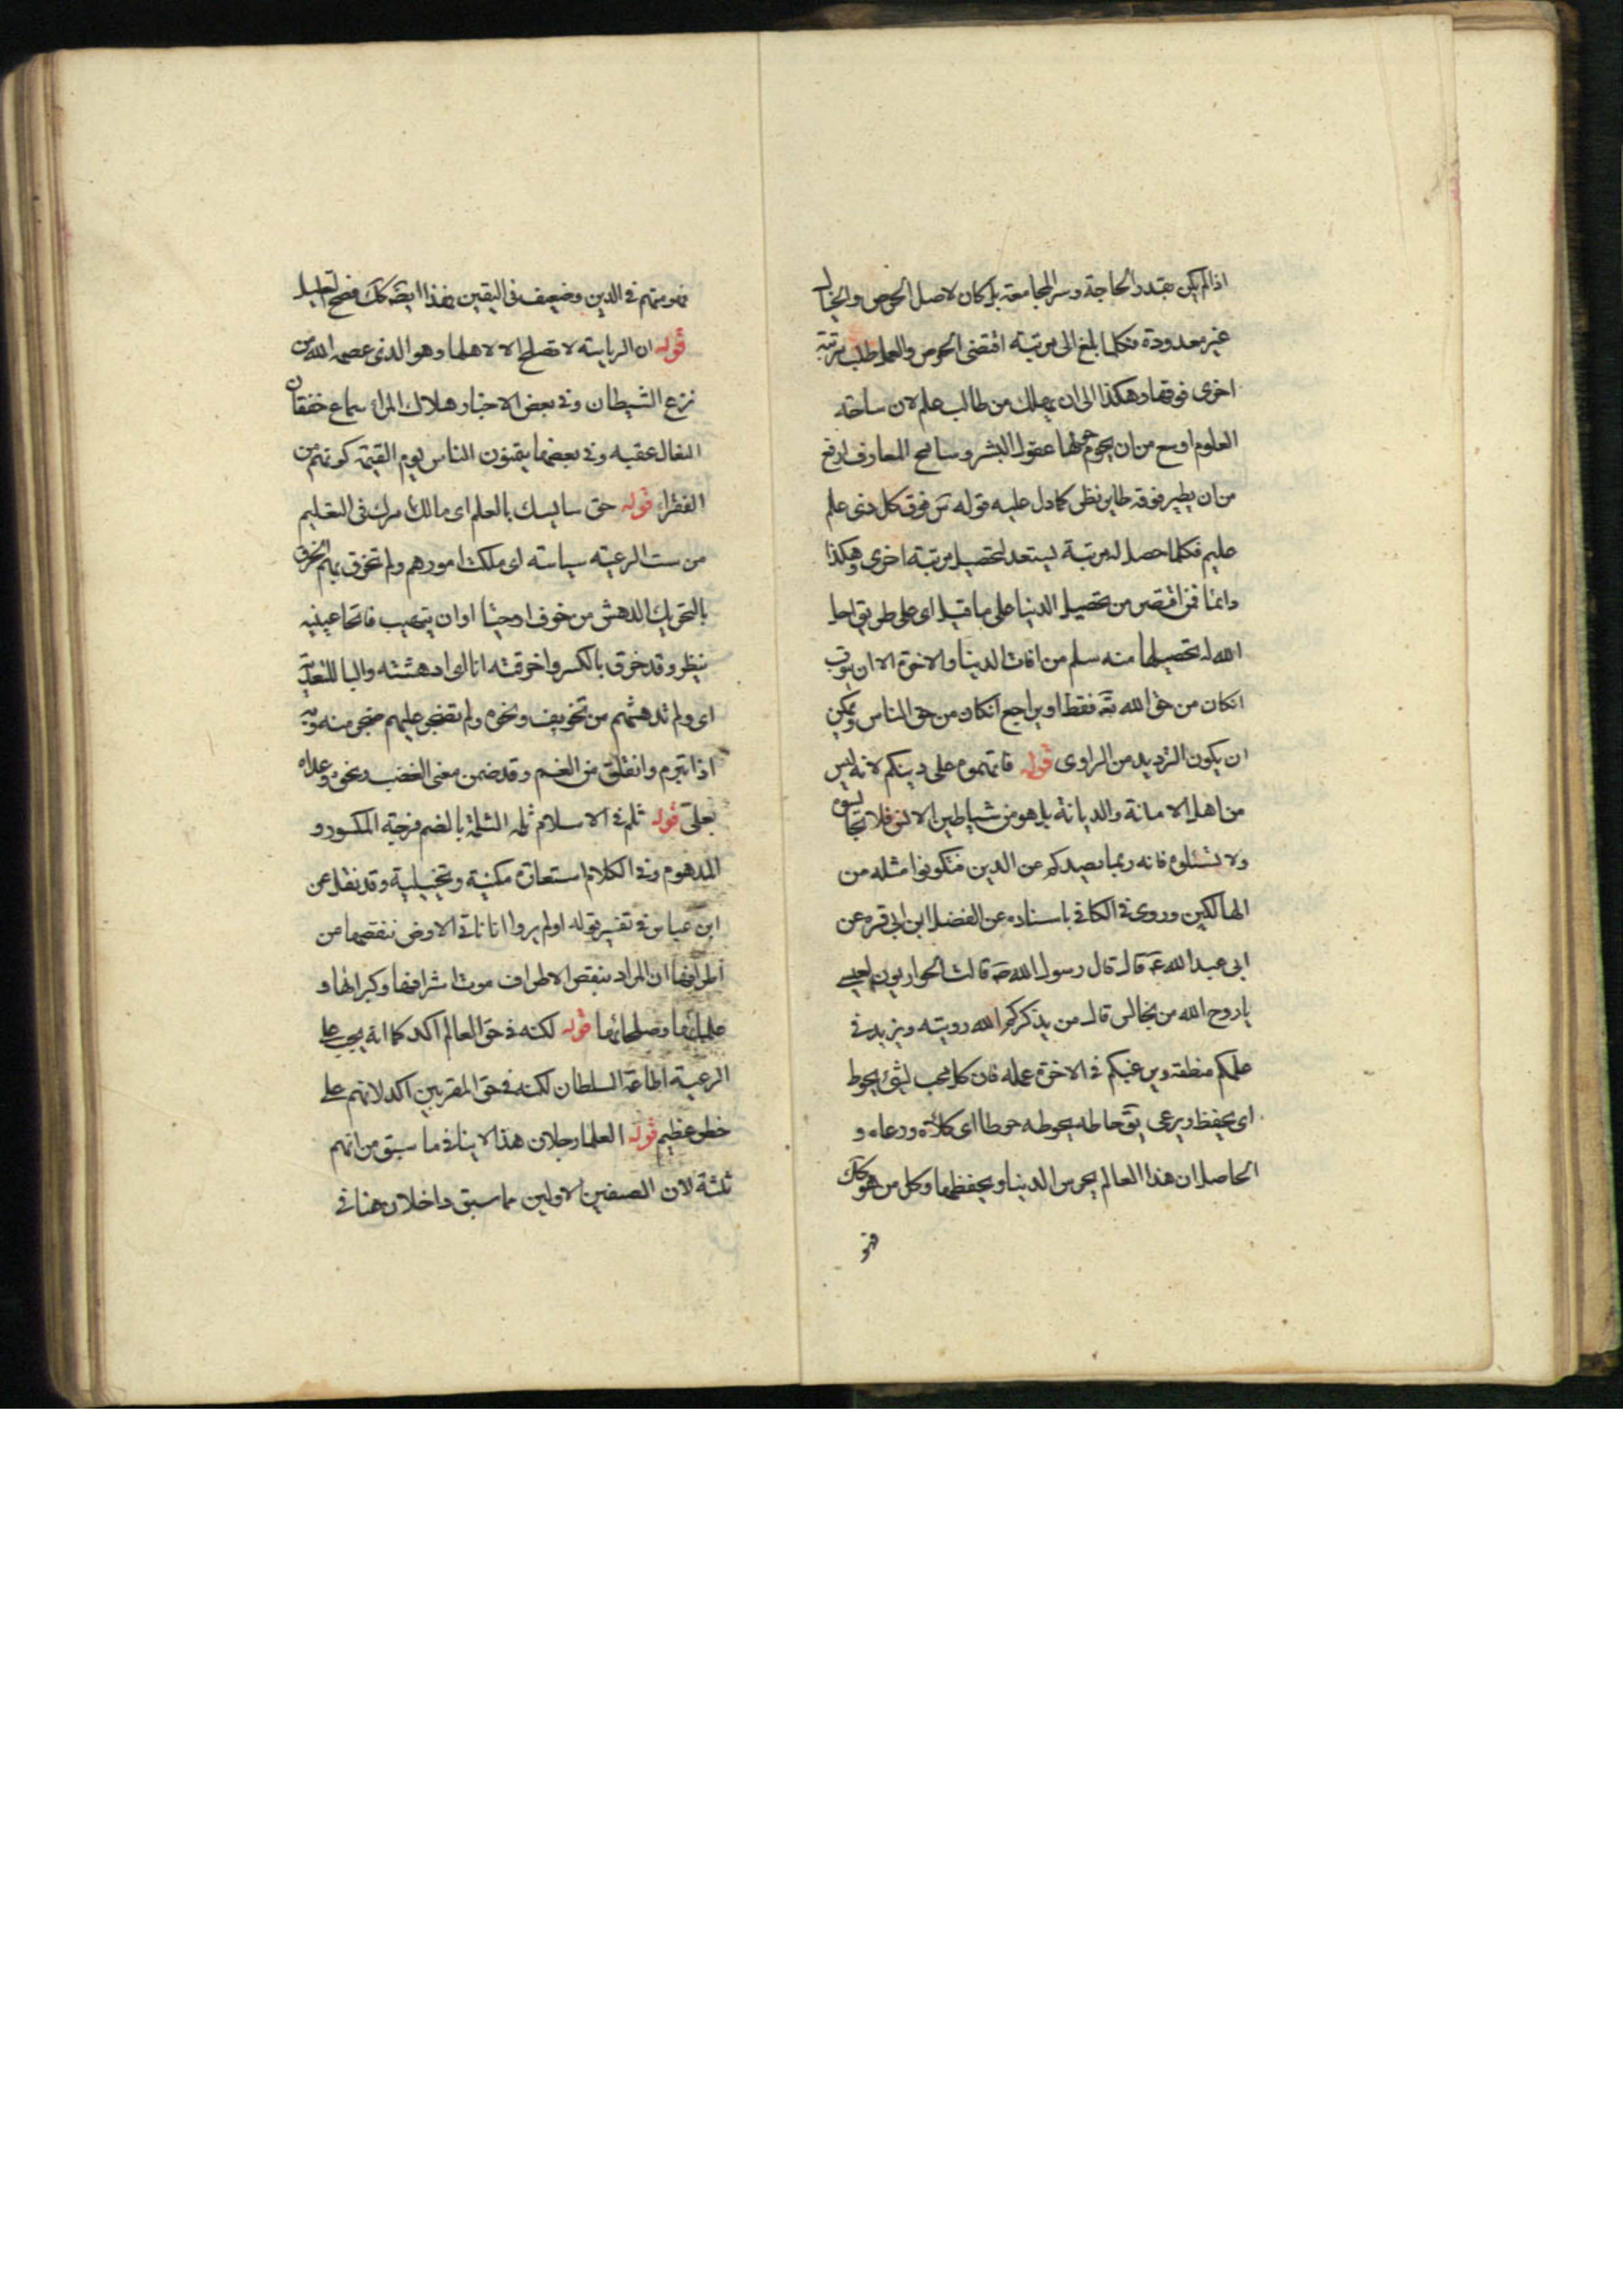 اذا لم يكن بقدر الحاجة وسر المجامعة بل كان لاصل الحرص والخيال
غير معدودة فكلما بلغ الى مرتبة اقتضى الحرص والعمل طلب مرتبة
اخرى فوقها وهكذا الى ان يهلك من طالب علم لان ساحة
العلوم اوسع من ان يحوم حولها عقول البشر وسامح المعارف ارفع
من ان يطير فوقه طاير نظر كما دل عليه قوله تعَ فوق كل ذى علم
عليم فكلما حصل له مرتبة يستعد لتحصيل مرتبة اخرى وهكذا
دائما فمن اقتصر من تحصيل الدنيا على ما قيل اى على طريق احل
الله له تحصيلها منه سلم من افات الدنيا والاخرة الا ان يتوب
انكان من حق الله تعَ فقط او يراجع انكان من حق الناس ويمكن
ان يكون الترديد من الراوى قوله فاتهموه على دينكم لانه ليس
من اهل الامانة والديانة بل هو من شياطين الانس فلا تجالسوه
ولا تسئلوه فانه ربما يصيدكم عن الدين فتكونوا مثله من
الهالكين وروى فى الكافى باسناده عن الفضل ابن ابى قره عن
ابى عبد الله عَ قال قال رسول الله صَ قالت الحواريون لعيسى
يا روح الله من نجالس قال من يذكركم الله رويته ويزيد فى
علمكم منطقه ويرغبكم فى الاخرة عمله فان كل محب لشئ يحوط
اى يحفظ ويرعى يقَ حاطه يحوطه حوطا اى كلأه ورعاه و
الحاصل ان هذا العالم يحرس الدنيا ويحفظها وكل من هو كك
فهو
فهو متهم فى الدين وضعيف فى اليقين فهذا ايضَ كك فصح التعليل
قوله ان الرياسة لا تصلح الا لاهلها وهو الذى عصمه الله من
نزع الشيطان وفى بعض الاخبار هلاك المرء سماع خفقان
النعال عقبه وفى بعضها يتمنون الناس يوم القيمة كونهم من
الفقراء قوله حق سايسك بالعلم اى مالك امرك فى التعليم
من ست الرعية سياسة اى ملكت امورهم ولم تخرق بهم الخرق
بالتحريك الدهش من خوف او حياء او ان يتهيب فاتحا عينيه
ينظر وقد خرق بالكسر واخرقته انا اى ادهشته والبا للتعدية
اى ولم تدهشهم من تخويف ونحوه ولم تضجر عليهم ضجر منه وبه
اذا تبرم وانقلق من الغم وقد ضمن معنى الغضب ونحوه وعداه
بعلى قوله ثلم فى الاسلام ثلمه الثلمة بالضم فرجة المكسور و
المدهوم وفى الكلام استعارة مكنية وتخييلية وقد نقل عن
ابن عباس فى تفسير قوله اولم يروا انا ناتى الارض ننقصها من
اطرافها ان المراد بنقص الاطراف موت اشرافها وكبرائها و
علمائها وصلحائها قوله لكنه فى حق العالم اكد كما انه يجب على
الرعية اطاعة السلطان لكنه فى حق المقربين اكد لانهم على
خطر عظيم قوله العلما رجلان هذا لا ينافى ما سبق من انهم
ثلثة لان الصنفين الاولين ما سبق داخلان هنا فى